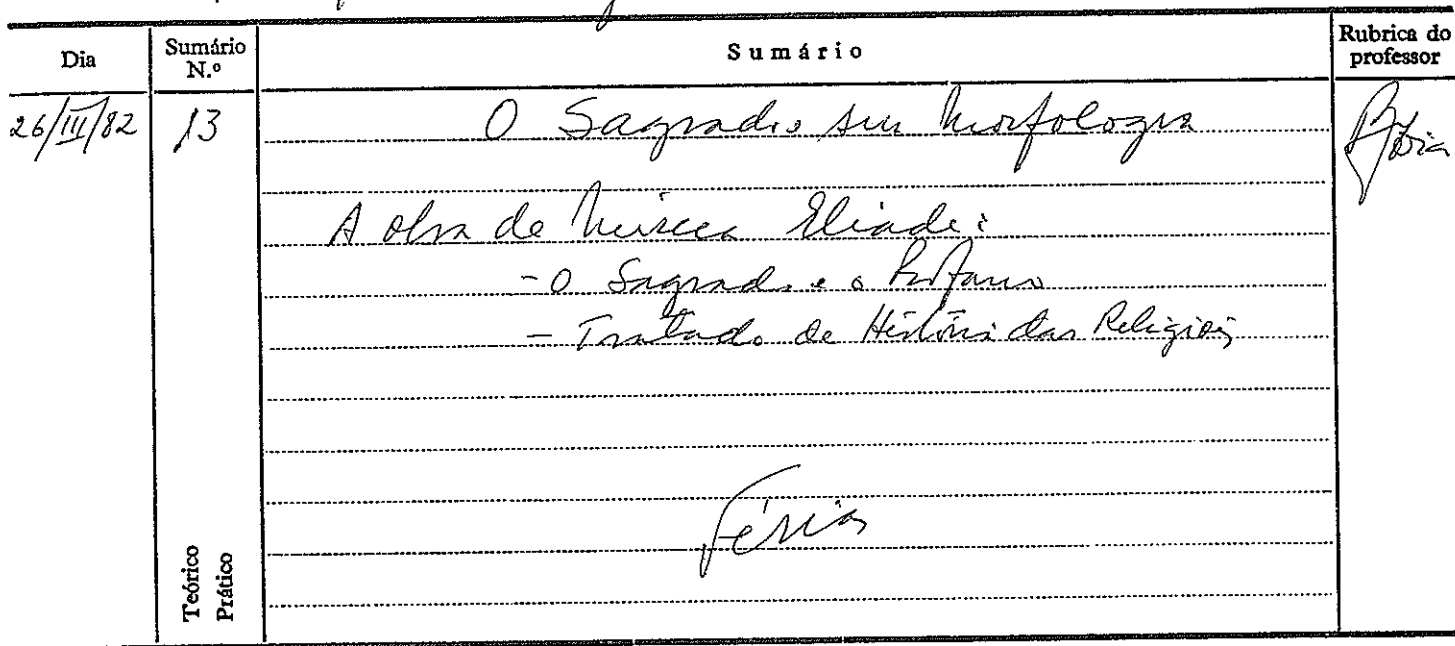 Dia Sumário N.º Sumário Rubrica do professor
26/III/82 13 O Sagrado: sua Morfologia
A obra de Mircea Eliade:
- O Sagrado e o Profano
- Tratado de História das Religiões
Férias
Teórico
Prático